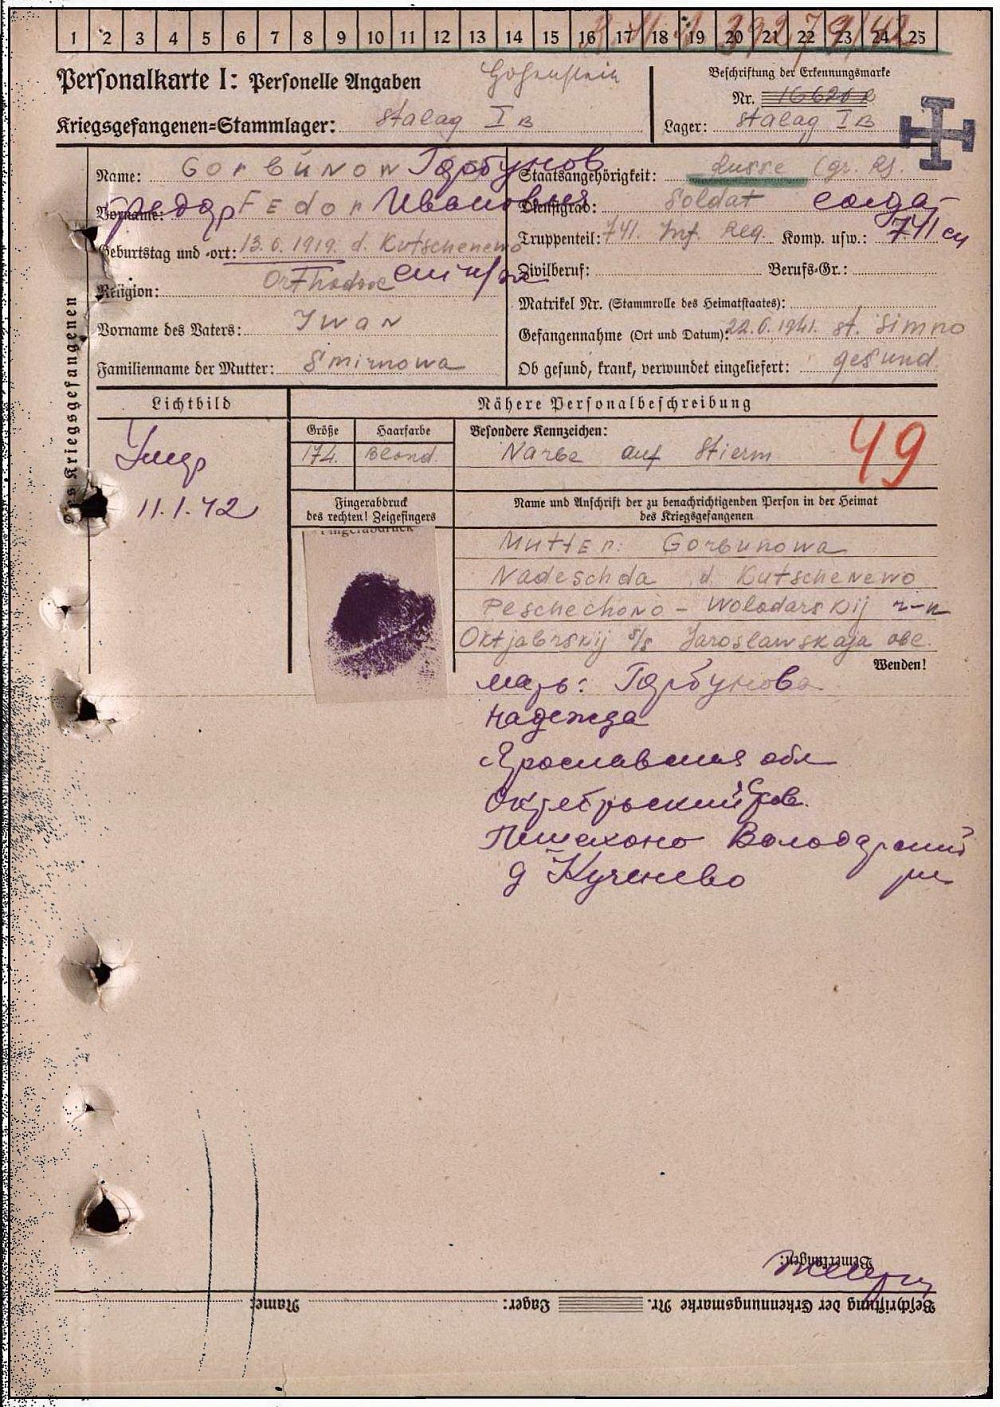 1 2 3 4 5 6 7 8 9 10 11 12 13 14 15 16 17 18 19 20 21 22 23 24 25
Personalkarte I: Personelle Angaben
Hohenstein
Kriegsgefangenen=Stammlager: Stalag I B
Beschriftung der Erkennungsmarke
Nr.
Lager: Stalag I B
des Kriegsgefangenen
Name: Gorbunow Горбунов
Vorname: Fedor Федор Иванович
Geburtstag und =ort: 13.6.1919. d. Kutschenewo
Religion: Orthodox
Vorname des Vaters: Iwan
Familienname der Mutter: Smirnowa
Staatsangehörigkeit: Russe
Dienstgrad: Soldat солдат
Truppenteil: 741. Inf. Reg. Komp. usw.: 741 сп
Zivilberuf: Berufs=Gr.:
Matrikel Nr. (Stammrolle des Heimatstaates):
Gefangennahme (Ort und Datum): 22.6.1941. st. Simno
Ob gesund, krank, verwundet eingeliefert: gesund.
Lichtbild
Умер
11.1.42
Nähere Personalbeschreibung
Größe
174.
Haarfarbe
Blond.
Besondere Kennzeichen:
Narbe auf Stierm
49
Fingerabdruck
des rechten! Zeigefingers
Fingerabdruck
Name und Anschrift der zu benachrichtigenden Person in der Heimat
des Kriegsgefangenen
Mutter: Gorbunowa
Nadeschda d. Kutschenewo
Peschechono - Wolodarskij r-n
Oktjabrskij s/s Jaroslawskaja obl.
Wenden!
мать: Горбунова
Надежда
Ярославская обл
Октябрьский
Пошехоно Володарский
д Кученево рн
Bemerkungen:
Beschriftung der Erkennungsmarke Nr. Lager: Name: